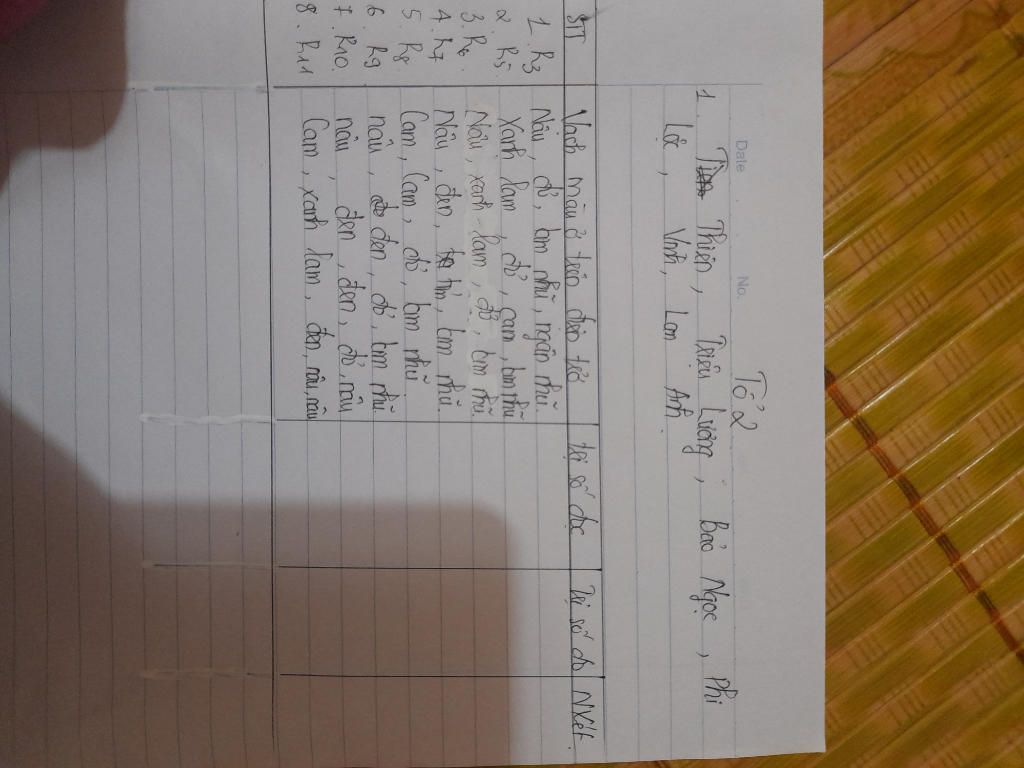 Date No.
Tổ 2
1. Thiên, Triệu Lương, Bảo Ngọc, Phi
Lộc, Vinh, Lan Anh.
STT Vạch màu ở trên điện trở trị số đọc Trị số đo Nhiệt
1. R3 Nâu, đỏ, tam nhũ, ngân nhũ.
2. R5. Xanh lam, đỏ, cam, tam nhũ
3. R6. Nâu, xanh lam, đỏ, tam nhũ.
4. R7 Nâu, đen, tím, tam nhũ.
5. R8. Cam, Cam, đỏ, tam nhũ
6 R9 nâu, đen, đỏ, tam nhũ.
7. R10. nâu đen, đen, đỏ, nâu
8. R11 Cam, xanh lam, đen, nâu, nâu